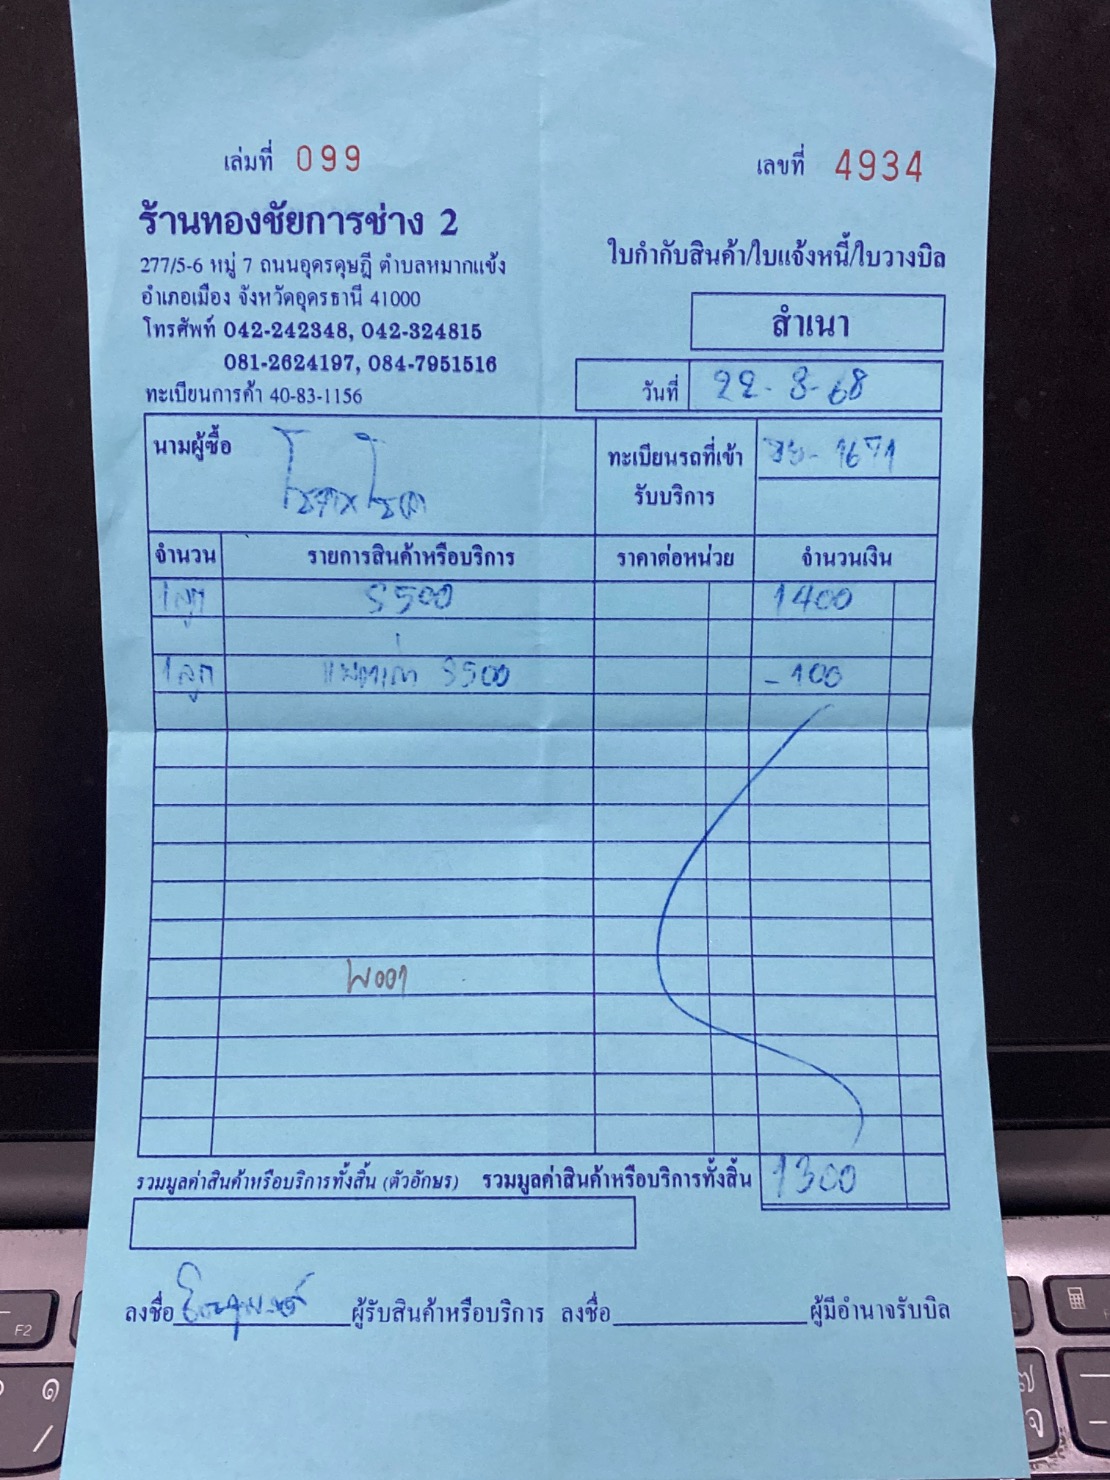 เล่มที่ 099
เลขที่ 4934
ร้านทองชัยการช่าง 2
277/5-6 หมู่ 7 ถนนอุดรดุษฎี ตำบลหมากแข้ง
อำเภอเมือง จังหวัดอุดรธานี 41000
โทรศัพท์ 042-242348, 042-324815
081-2624197, 084-7951516
ทะเบียนการค้า 40-83-1156
ใบกำกับสินค้า/ใบแจ้งหนี้/ใบวางบิล
สำเนา
วันที่ 22-8-68
นามผู้ซื้อ
ทะเบียนรถที่เข้ารับบริการ 1671
จำนวน รายการสินค้าหรือบริการ ราคาต่อหน่วย จำนวนเงิน
1 ลูก S500 1400
1 ลูก S500 -100
W001
รวมมูลค่าสินค้าหรือบริการทั้งสิ้น (ตัวอักษร) รวมมูลค่าสินค้าหรือบริการทั้งสิ้น 1300
ลงชื่อ ผู้รับสินค้าหรือบริการ ลงชื่อ ผู้มีอำนาจรับบิล
F2